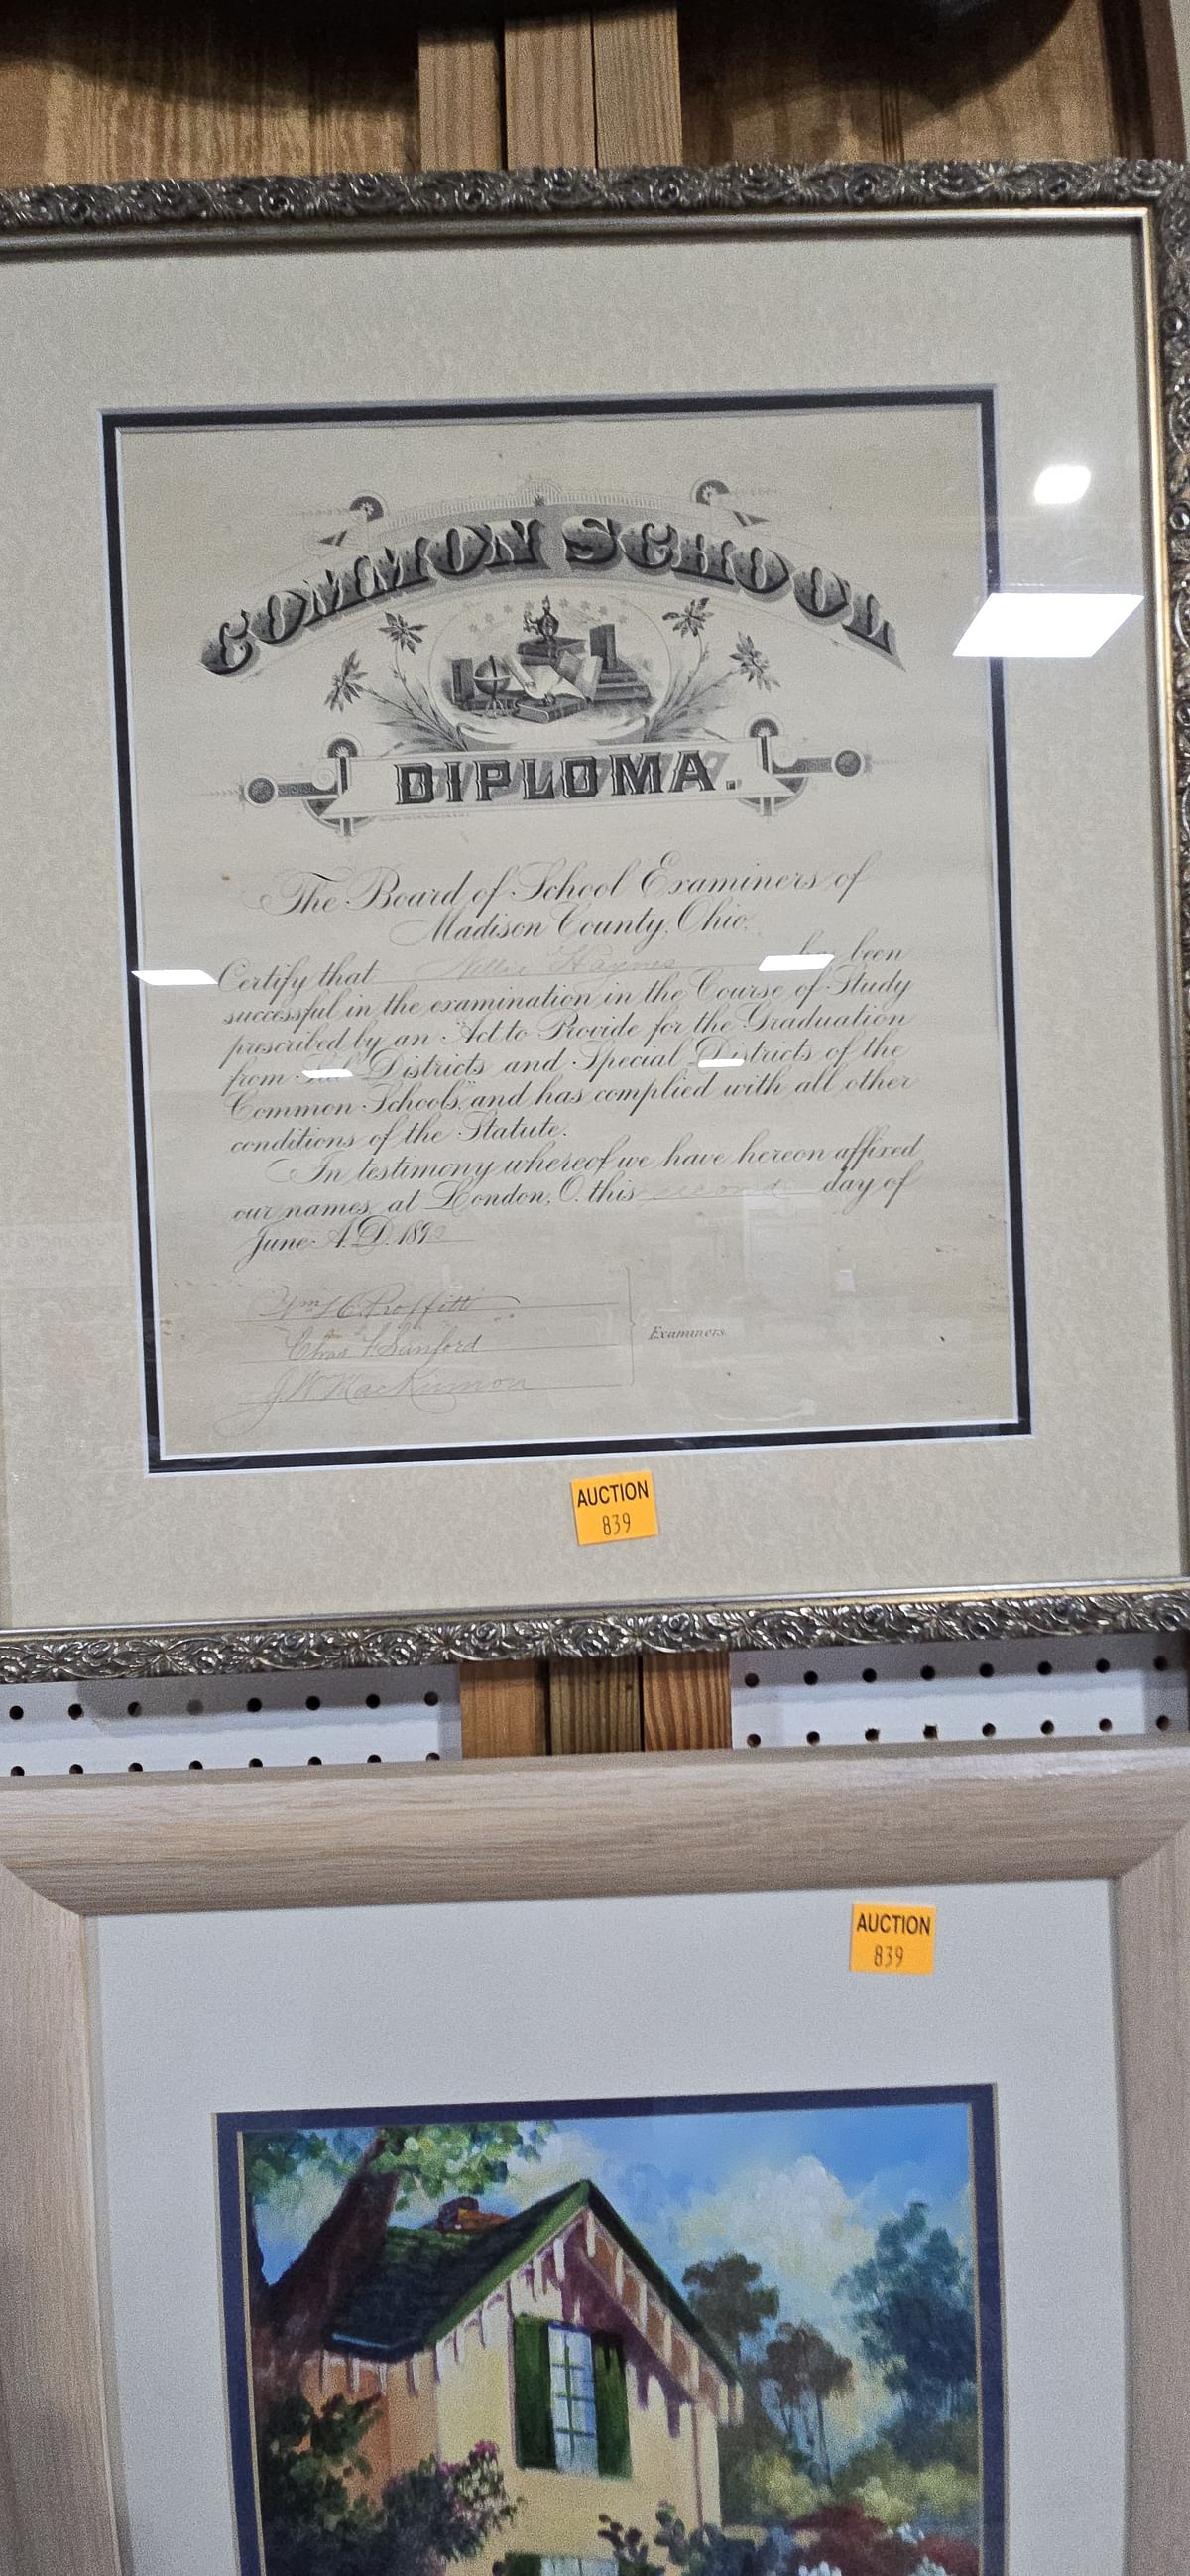 COMMON SCHOOL
DIPLOMA.
The Board of School Examiners of
Madison County, Ohio,
Certify that Nellie Haynes been
successful in the examination in the Course of Study
prescribed by an "Act to Provide for the Graduation
from Districts and Special Districts of the
Common Schools," and has complied with all other
conditions of the Statute.
In testimony whereof we have hereon affixed
our names, at London, O. this second day of
June A.D. 189
Wm H C. Proffitt
Chas F Sanford
J. W. MacKinnon
Examiners.
AUCTION
839
AUCTION
839